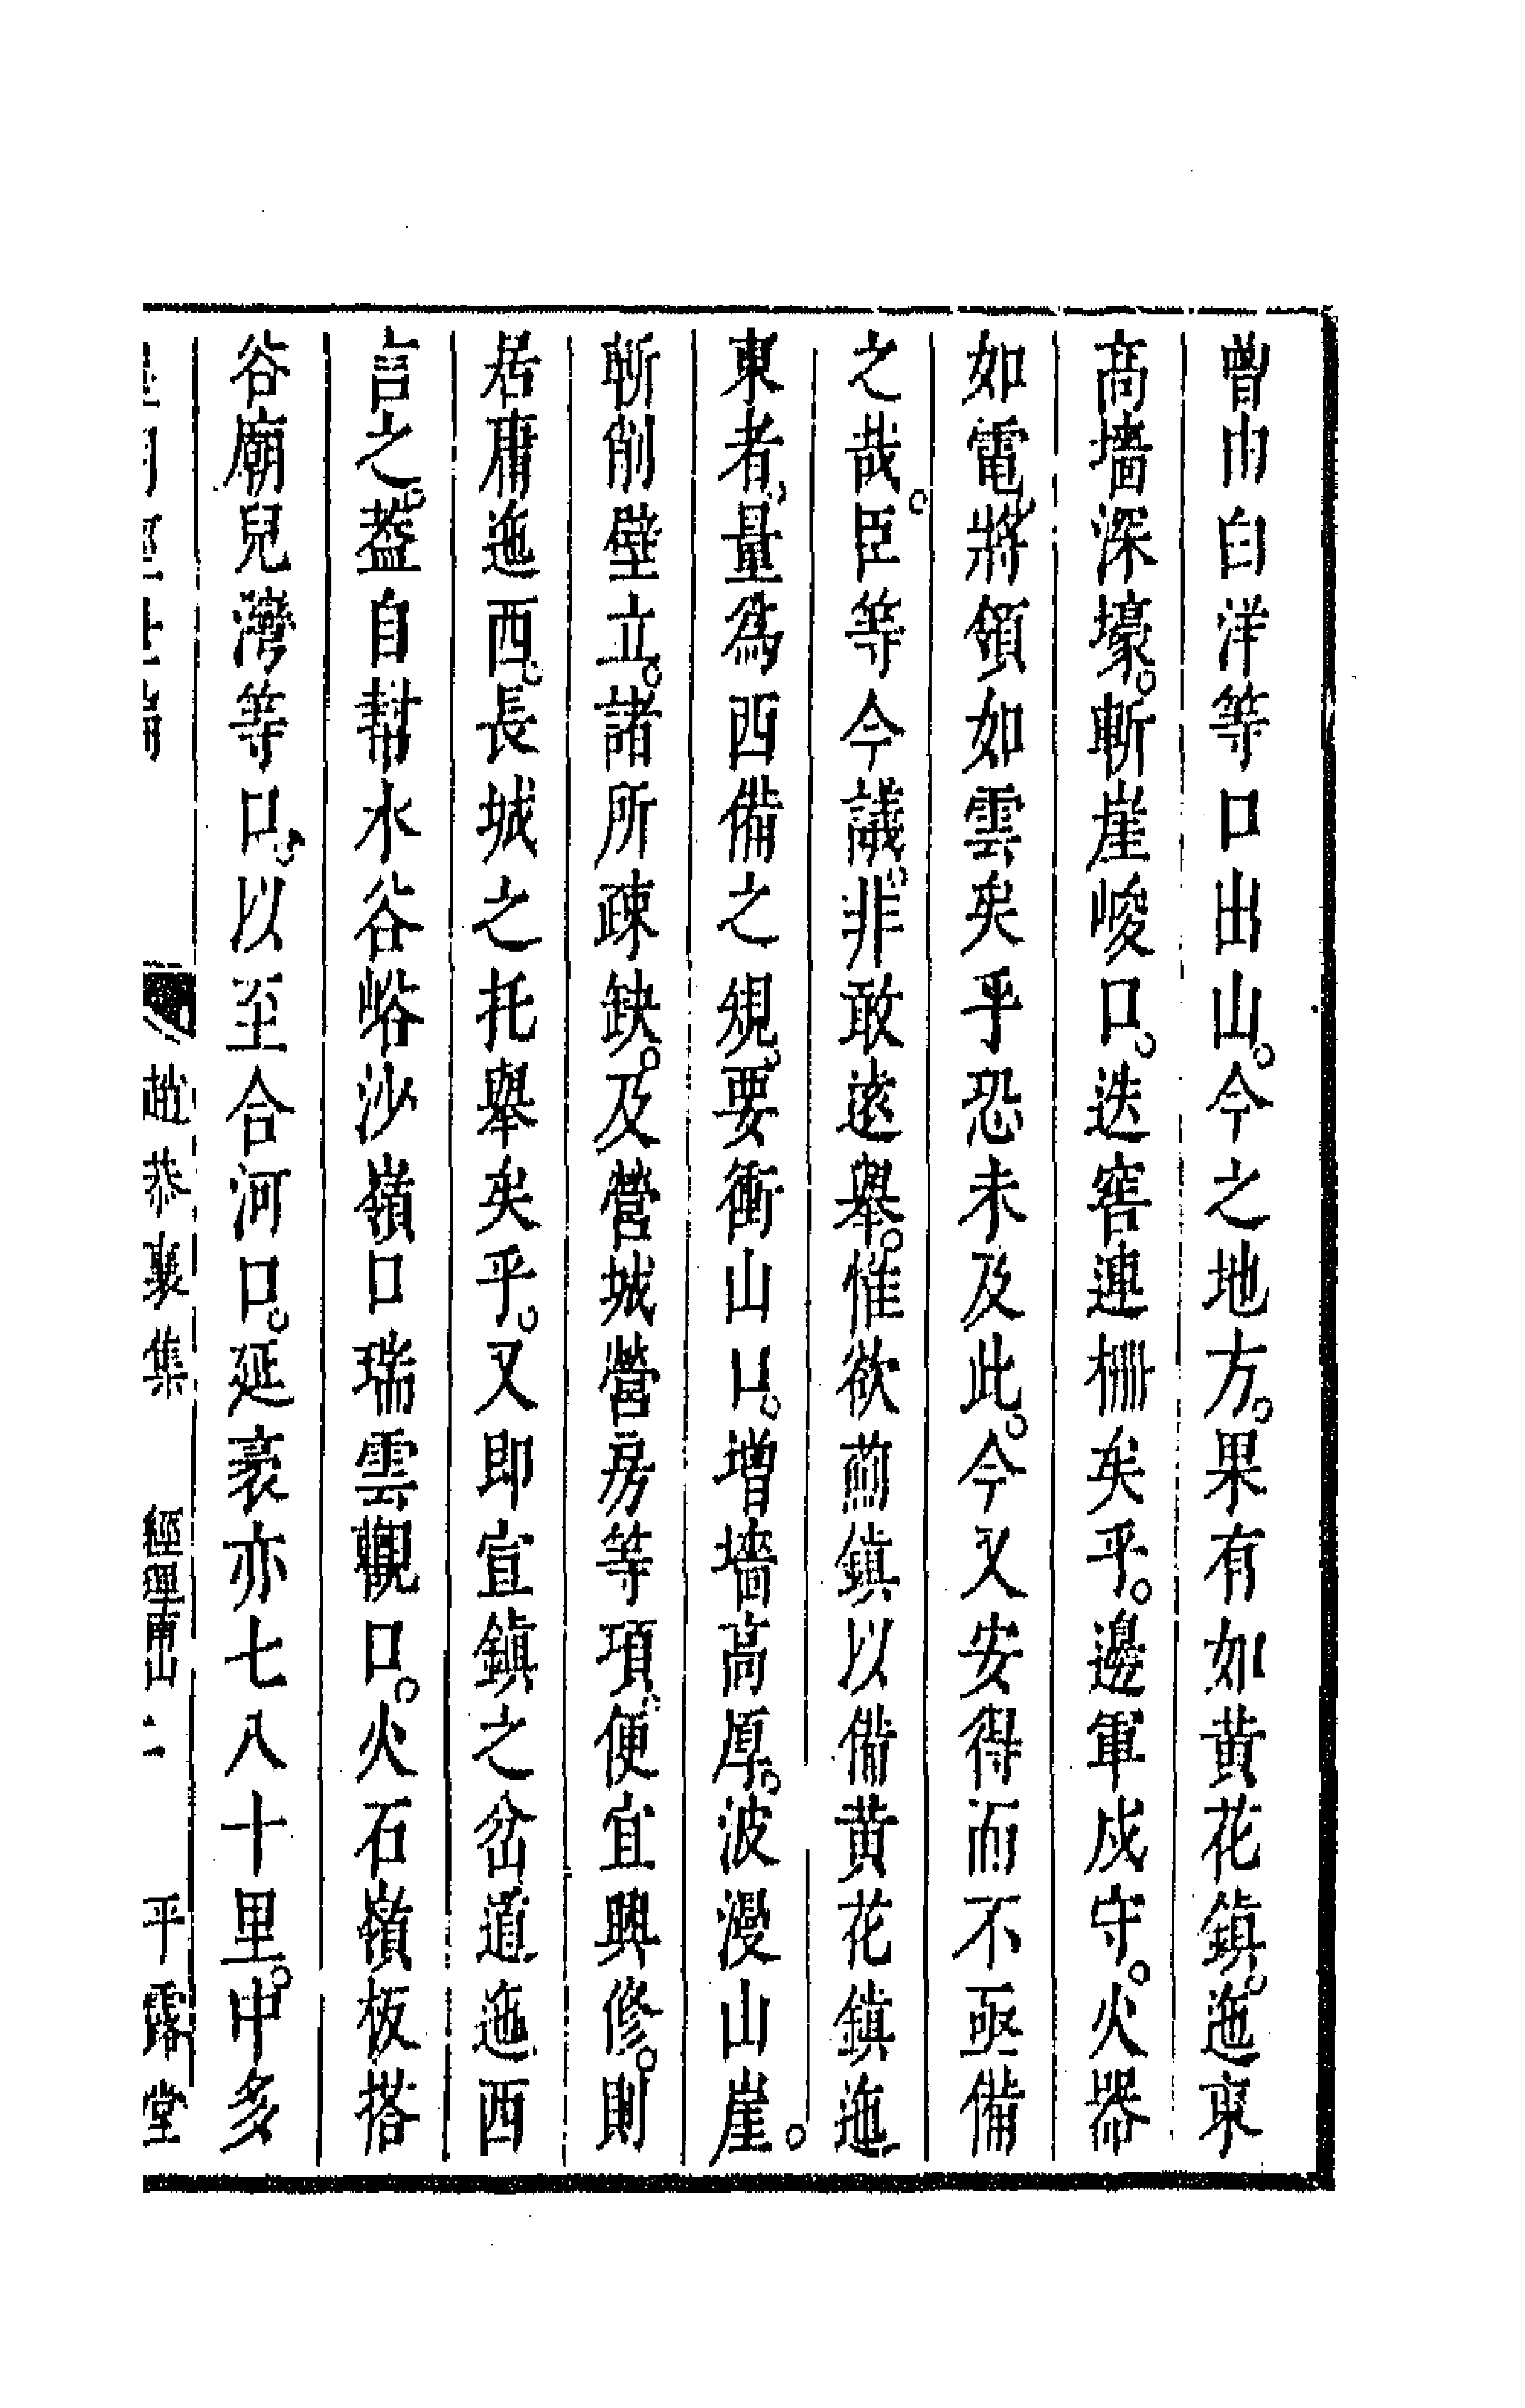 曾由白洋等口出山。今之地方。果有如黄花鎮。迤東
高墻深壕。斬崖峻口。迭窖連柵矣乎。邊軍戍守。火器
如電、將領如雲矣乎恐未及此。今又安得而不亟備
之哉。臣等今議、非敢遠舉。惟欲薊鎮以備黄花鎮迤
東者、量為西備之規。要衝山口。增墻高厚。波漫山崖。
斬削壁立。諸所疎缺。及營城營房等項、便宜興修。則
居庸迤西。長城之托舉矣乎。又即宣鎮之岔道迤西
言之。葢自幇水谷峪沙嶺口瑞雲觀口。火石嶺板搭
谷廟兒灣等口。以至合河口。延袤亦七八十里。中多
趙恭襄集 經理南山 二 平露堂